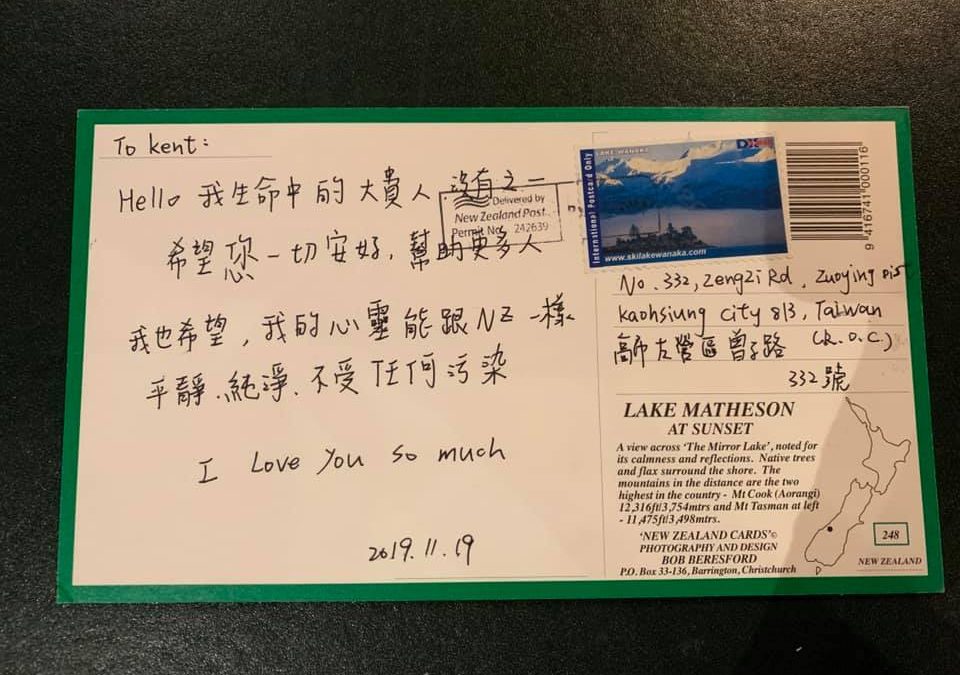 To kent:
Hello 我生命中的大貴人 沒有之一
希望您一切安好, 幫助更多人
我也希望, 我的心靈能跟NZ一樣
平靜、純淨、不受任何污染
I Love You so much
2019.11.19
Delivered by
New Zealand Post
Permit No. 242639
LAKE WANAKA
International Postcard Only
www.skilakewanaka.com
9416741000116
No. 332, Zengzi Rd, Zuoying Dis
Kaohsiung City 813, Taiwan
高市左營區曾子路 (R.O.C.)
332號
LAKE MATHESON
AT SUNSET
A view across 'The Mirror Lake', noted for
its calmness and reflections. Native trees
and flax surround the shore. The
mountains in the distance are the two
highest in the country - Mt Cook (Aorangi)
12,316ft/3,754mtrs and Mt Tasman at left
- 11,475ft/3,498mtrs.
'NEW ZEALAND CARDS'©
PHOTOGRAPHY AND DESIGN
BOB BERESFORD
P.O. Box 33-136, Barrington, Christchurch
248
NEW ZEALAND